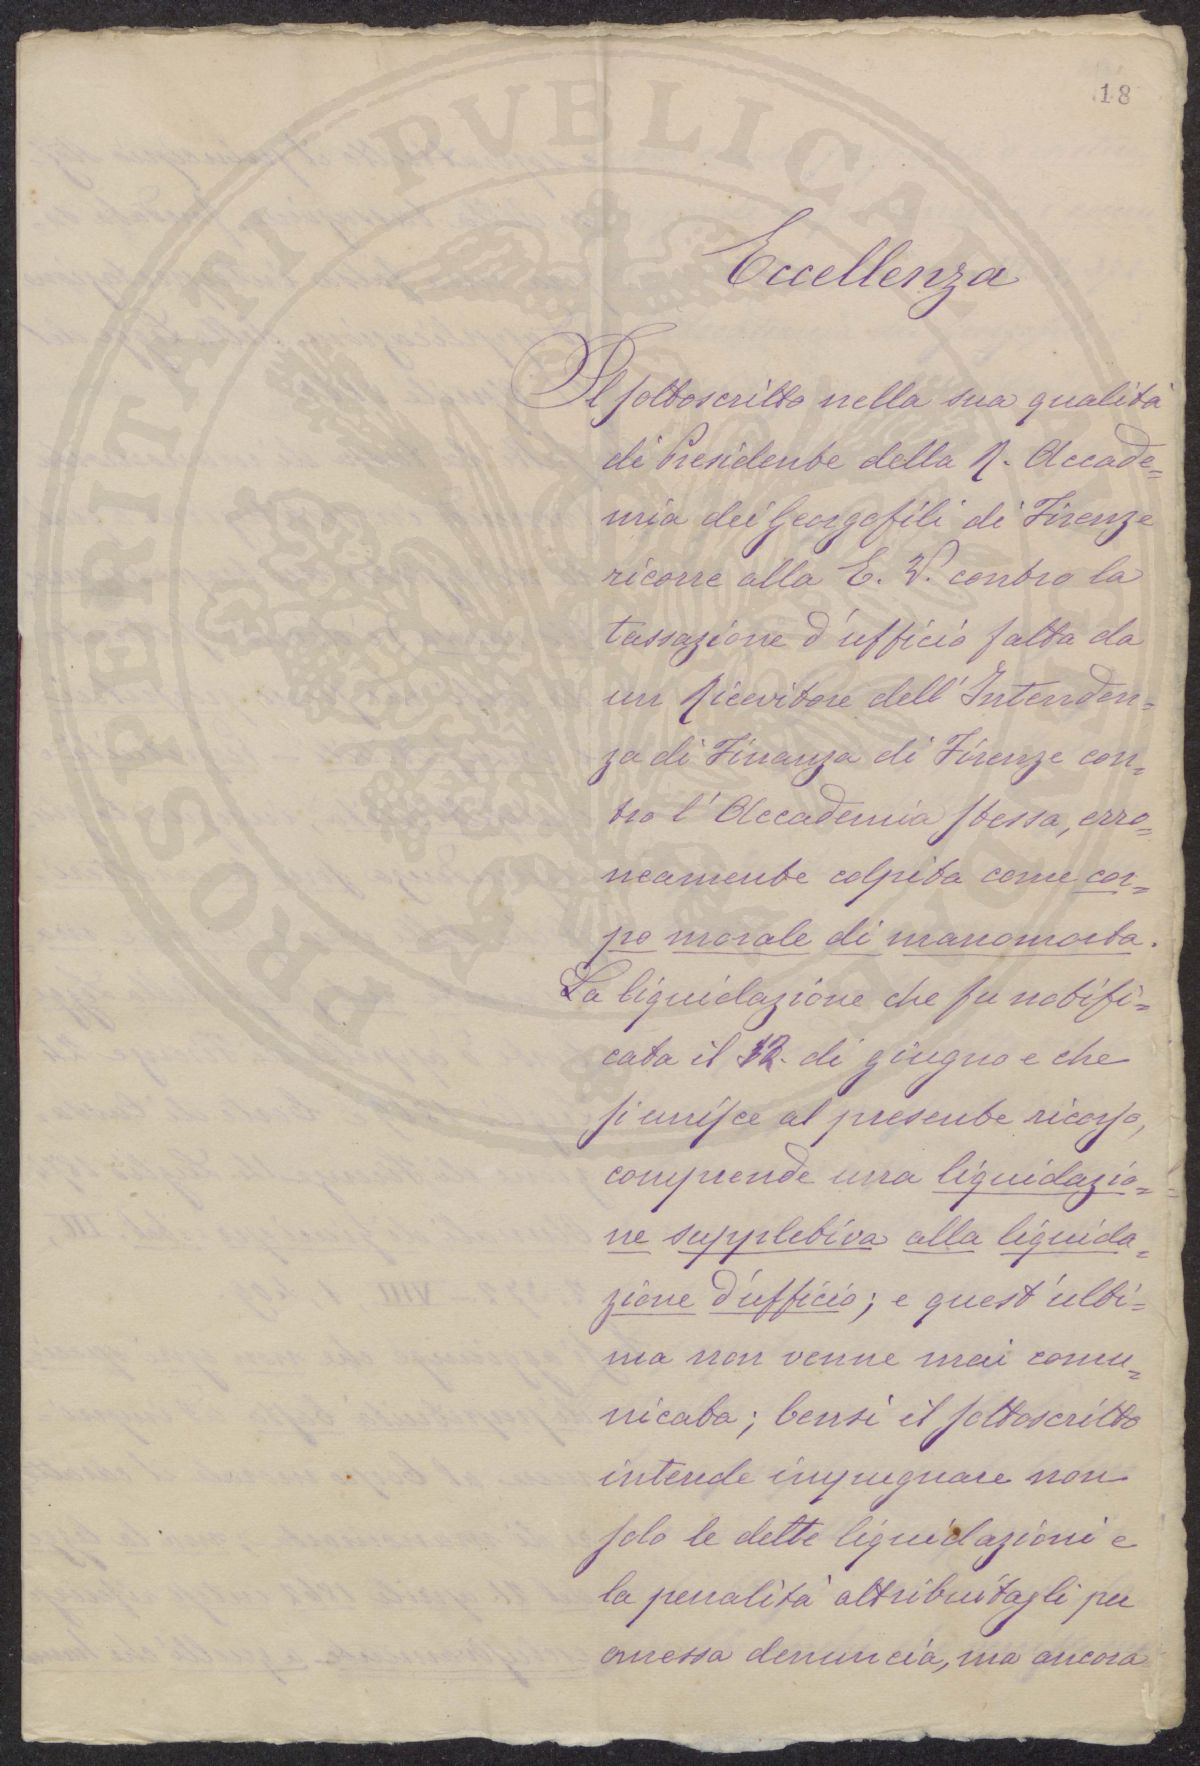 18
PROSPERITATI PVBLICAE
Eccellenza
Il sottoscritto nella sua qualità
di Presidente della R. Accade=
mia dei Georgofili di Firenze
ricorre alla E. V. contro la
tassazione d'ufficio fatta da
un Ricevitore dell'Intenden=
za di Finanza di Firenze con=
tro l'Accademia stessa, erro=
neamente colpita come cor=
po morale di manomorta.
La liquidazione che fu notifi=
cata il 12. di giugno e che
si unisce al presente ricorso,
comprende una liquidazio=
ne suppletiva alla liquida=
zione d'ufficio; e quest'ulti=
ma non venne mai comu=
nicata; bensì il sottoscritto
intende impugnare non
solo le dette liquidazioni e
la penalità attribuitagli per
omessa denuncia, ma ancora